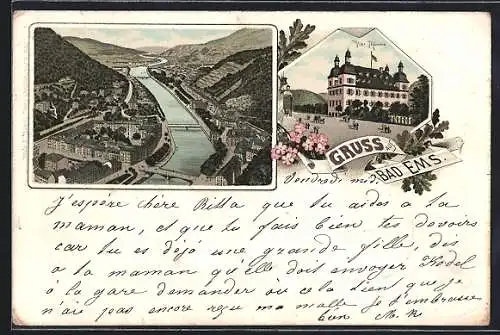 Vier Thürme
GRUSS aus
BAD EMS.
Vendredi
J'espère chère Ritta que tu aides a la
maman, et que tu fais bien tes devoirs
car tu es déjà une grande fille, dis
a la maman qu'elle doit envoyer
à la gare demander ou cela tient que je
n'aie pas encore reçu ma malle je t'embrasse
bien